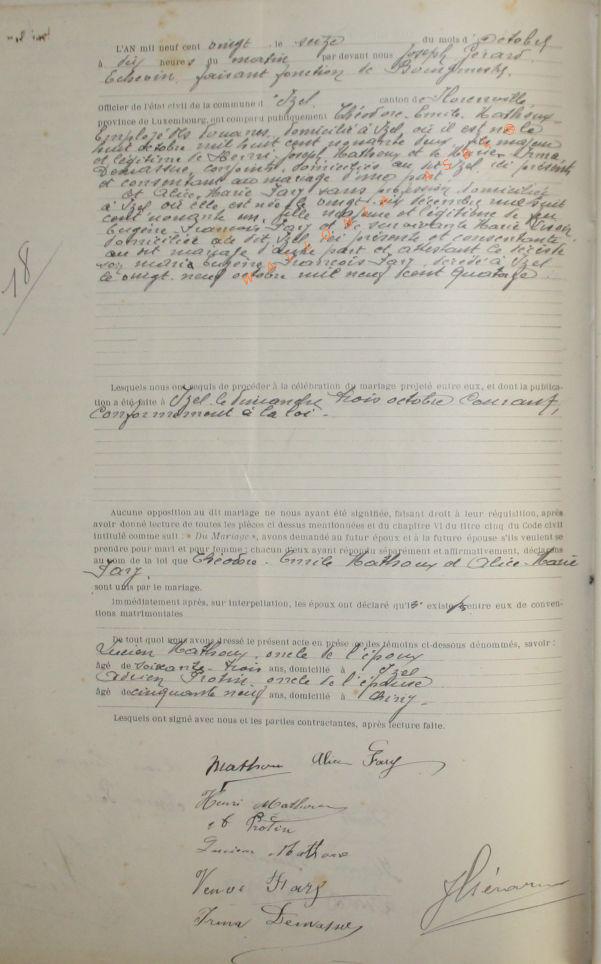 L'AN mil neuf cent vingt le seize du mois d'octobre
à dix heures du matin par devant nous Joseph
Echevin, faisant fonction de Bourgmestre,
Officier de l'état civil de la commune d'Izel canton de Florenville
province de Luxembourg, ont comparu publiquement Théodore-Emile Mathoux
Employé des douanes, domicilié à Izel, où il est né le
huit octobre mil huit cent nonante deux, fils majeur
et légitime de Henri Joseph Mathoux et de Irma
Demasse, conjoints, domiciliés au dit Izel, ici présents
et consentant au mariage d'une part
Et Alice-Marie Fary sans profession domiciliée
à Izel où elle est née le vingt décembre mil huit
cent nonante un, fille majeure et légitime de feu
Eugène François Fary et de survivante Marie
domiciliée au dit Izel, ici présente et consentante
au dit mariage d'autre part et attestant le décès de
son mari Eugène François Fary décédé à Izel
le vingt neuf octobre mil neuf cent quatorze.
18
Lesquels nous ont requis de procéder à la célébration du mariage projeté entre eux, et dont la publica-
tion a été faite à Izel le dimanche trois octobre courant,
Conformément à la loi.
Aucune opposition au dit mariage ne nous ayant été signifiée, faisant droit à leur réquisition, après
avoir donné lecture de toutes les pièces ci dessus mentionnées et du chapitre VI du titre cinq du Code civil
intitulé comme suit : « Du Mariage », avons demandé au futur époux et à la future épouse s'ils veulent se
prendre pour mari et pour femme ; chacun d'eux ayant répondu séparément et affirmativement, déclarons
au nom de la loi que Théodore-Emile Mathoux et Alice-Marie
Fary
sont unis par le mariage.
Immédiatement après, sur interpellation, les époux ont déclaré qu'il existe pas entre eux de conven-
tions matrimoniales
De tout quoi nous avons dressé le présent acte en présence des témoins ci-dessous dénommés, savoir :
Lucien Mathoux, oncle de l'époux
âgé de soixante-trois ans, domicilié à Izel
Adrien Protin, oncle de l'épouse
âgé de cinquante neuf ans, domicilié à Chiny
Lesquels ont signé avec nous et les parties contractantes, après lecture faite.
Mathoux Alice Fary
Henri Mathoux
A Protin
Lucien Mathoux
Veuve Fary
Irma Demasse